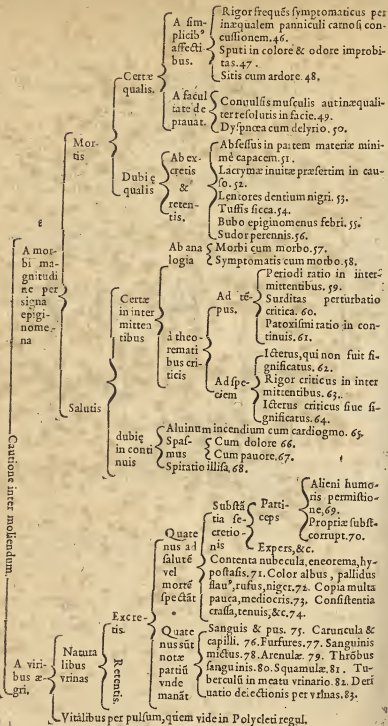 A simplicib⁹ affectibus.
Rigor frequẽs symptomaticus per
inæqualem panniculi carnosi con-
cussionem. 46.
Sputi in colore & odore improbi-
tas. 47.
Sitis cum ardore. 48.
Certæ
qualis.
A facul
tate de
prauat.
Conuulsis musculis aut inæquali-
ter resolutis in facie. 49.
Dyspnœa cum delyrio. 50.
Mor-
tis
Dubię
qualis
Ab ex-
cretis
&
reten-
tis.
Absessus in partem materiæ mini-
mè capacem. 51.
Lacrymæ inuitæ præsertim in cau-
so. 52.
Lentores dentium nigri. 53.
Tussis sicca. 54.
Bubo epiginomenus febri. 55.
Sudor perennis. 56.
A mor-
bi ma-
gnitudi
ne per
signa
epigi-
nome-
na
Salutis
Certæ
in inter
mitten
tibus
Ab ana
logia
Morbi cum morbo. 57.
Symptomatis cum morbo. 58.
à theo-
remati
bus cri-
ticis
Ad tẽ-
pus.
Periodi ratio in inter-
mittentibus. 59.
Surditas perturbatio
critica. 60.
Paroxismi ratio in con-
tinuis. 61.
Ad spe-
ciem
Icterus, qui non fuit si-
gnificatus. 62.
Rigor criticus in inter
mittentibus. 63.
Icterus criticus siue si-
gnificatus. 64.
dubię
in conti
nuis
Aluinum incendium cum cardiogmo. 65.
Spas-
mus
Cum dolore 66.
Cum pauore. 67.
Spiratio illisa. 68.
Cautione inter moliendum.
A viri-
bus æ-
gri.
Natura
libus
vrinas
Excre-
tis.
Retentis.
Quate
nus ad
salutẽ
vel
mortẽ
spectãt
Substã
tia se-
cretio-
nis
Parti-
ceps
Alieni humo-
ris permistio-
ne, 69.
Propriæ subst.
corrupt. 70.
Expers, &c.
Contenta nubecula, eneorema, hy-
postasis. 71. Color albus, pallidus
flau⁹, rufus, niger. 72. Copia multa
pauca, mediocris. 73. Consistentia
crassa, tenuis, &c. 74.
Quate
nus sũt
notæ
partiũ
vnde
manãt
Sanguis & pus. 75. Caruncula &
capilli. 76. Furfures. 77. Sanguinis
mictus. 78. Arenulæ. 79. Thrõbus
sanguinis. 80. Squamulæ. 81. Tu-
berculũ in meatu vrinario. 82. Deri
uatio deiectionis per vrinas. 83.
Vitalibus per pulsum, quem vide in Polycleti regul.